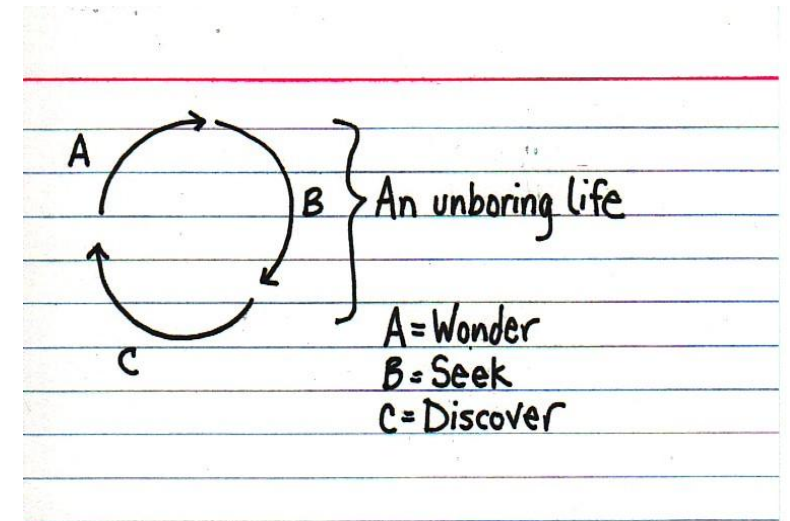 A
B
An unboring life
C
A = Wonder
B = Seek
C = Discover